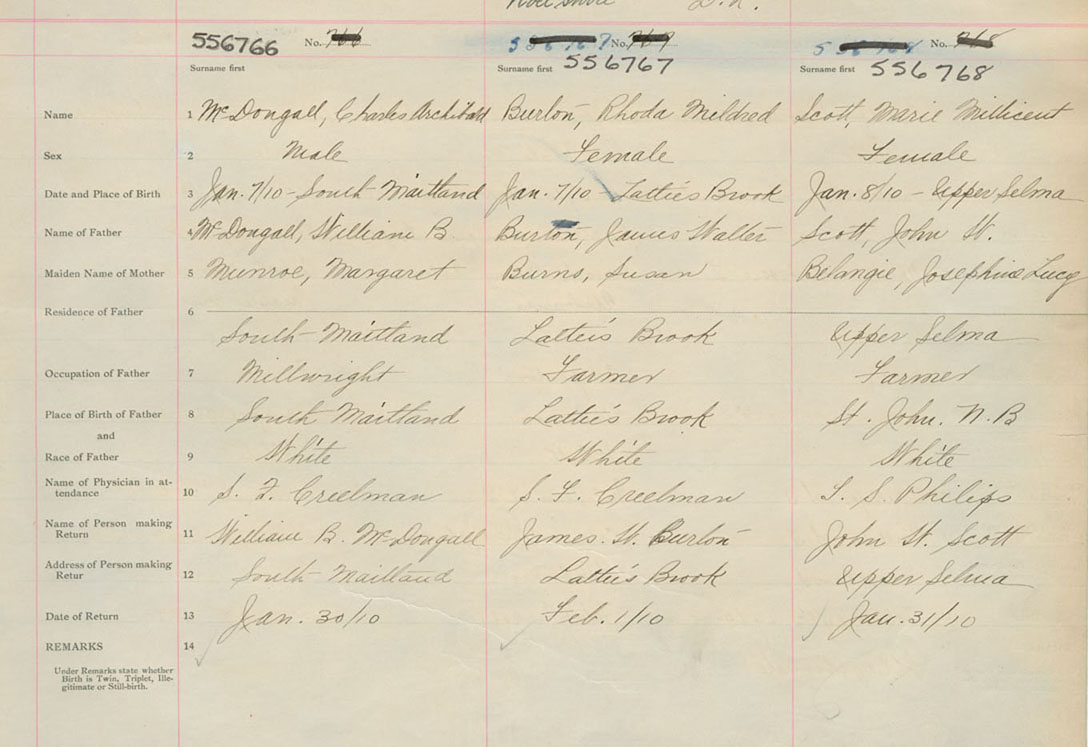 556766 No. 766 No. 767 No. 768
Surname first Surname first 556767 Surname first 556768
Name 1 McDougall, Charles Archibald Burton, Rhoda Mildred Scott, Marie Millicent
Sex 2 Male Female Female
Date and Place of Birth 3 Jan. 7/10 - South Maitland Jan. 7/10 - Latties Brook Jan. 8/10 - Upper Selma
Name of Father 4 McDougall, William B. Burton, James Walter Scott, John W.
Maiden Name of Mother 5 Munroe, Margaret Burns, Susan Belangie, Josephine Lucy
Residence of Father 6
South Maitland Lattie's Brook Upper Selma
Occupation of Father 7 Millwright Farmer Farmer
Place of Birth of Father 8 South Maitland Lattie's Brook St. John. N.B
and
Race of Father 9 White White White
Name of Physician in at-
tendance 10 S. F. Creelman S. F. Creelman T. S. Philips
Name of Person making
Return 11 William B. McDougall James. W. Burton John W. Scott
Address of Person making
Retur 12 South Maitland Lattie's Brook Upper Selma
Date of Return 13 Jan. 30/10 Feb. 1/10 Jan. 31/10
REMARKS 14
Under Remarks state whether
Birth is Twin, Triplet, Ille-
gitimate or Still-birth.